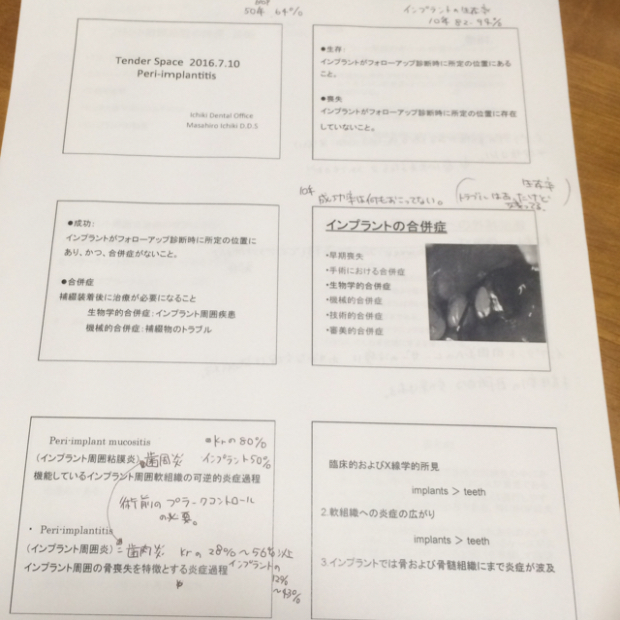 50年 64%
インプラントの生存率
10年 82.94%
Tender Space 2016.7.10
Peri-implantitis
Ichiki Dental Office
Masahiro Ichiki D.D.S
●生存:
インプラントがフォローアップ診断時に所定の位置にある
こと。
●喪失
インプラントがフォローアップ診断時に所定の位置に存在
していないこと。
10年 成功率は何もおこってない。
生存率
トラブルはあったけど
●成功:
インプラントがフォローアップ診断時に所定の位置に
あり、かつ、合併症がないこと。
●合併症
補綴装着後に治療が必要になること
生物学的合併症:インプラント周囲疾患
機械的合併症:補綴物のトラブル
インプラントの合併症
・早期喪失
・手術における合併症
・生物学的合併症
・機械的合併症
・技術的合併症
・審美的合併症
Peri-implant mucositis
krの80%
(インプラント周囲粘膜炎) 歯肉炎 インプラント50%
機能しているインプラント周囲軟組織の可逆的炎症過程
術前のプラークコントロール
の必要。
・ Peri-implantitis
(インプラント周囲炎)= 歯周炎 krの28%~56%以上
インプラント周囲の骨喪失を特徴とする炎症過程
インプラントの
12%
~43%
臨床的およびX線学的所見
implants > teeth
2.軟組織への炎症の広がり
implants > teeth
3.インプラントでは骨および骨髄組織にまで炎症が波及